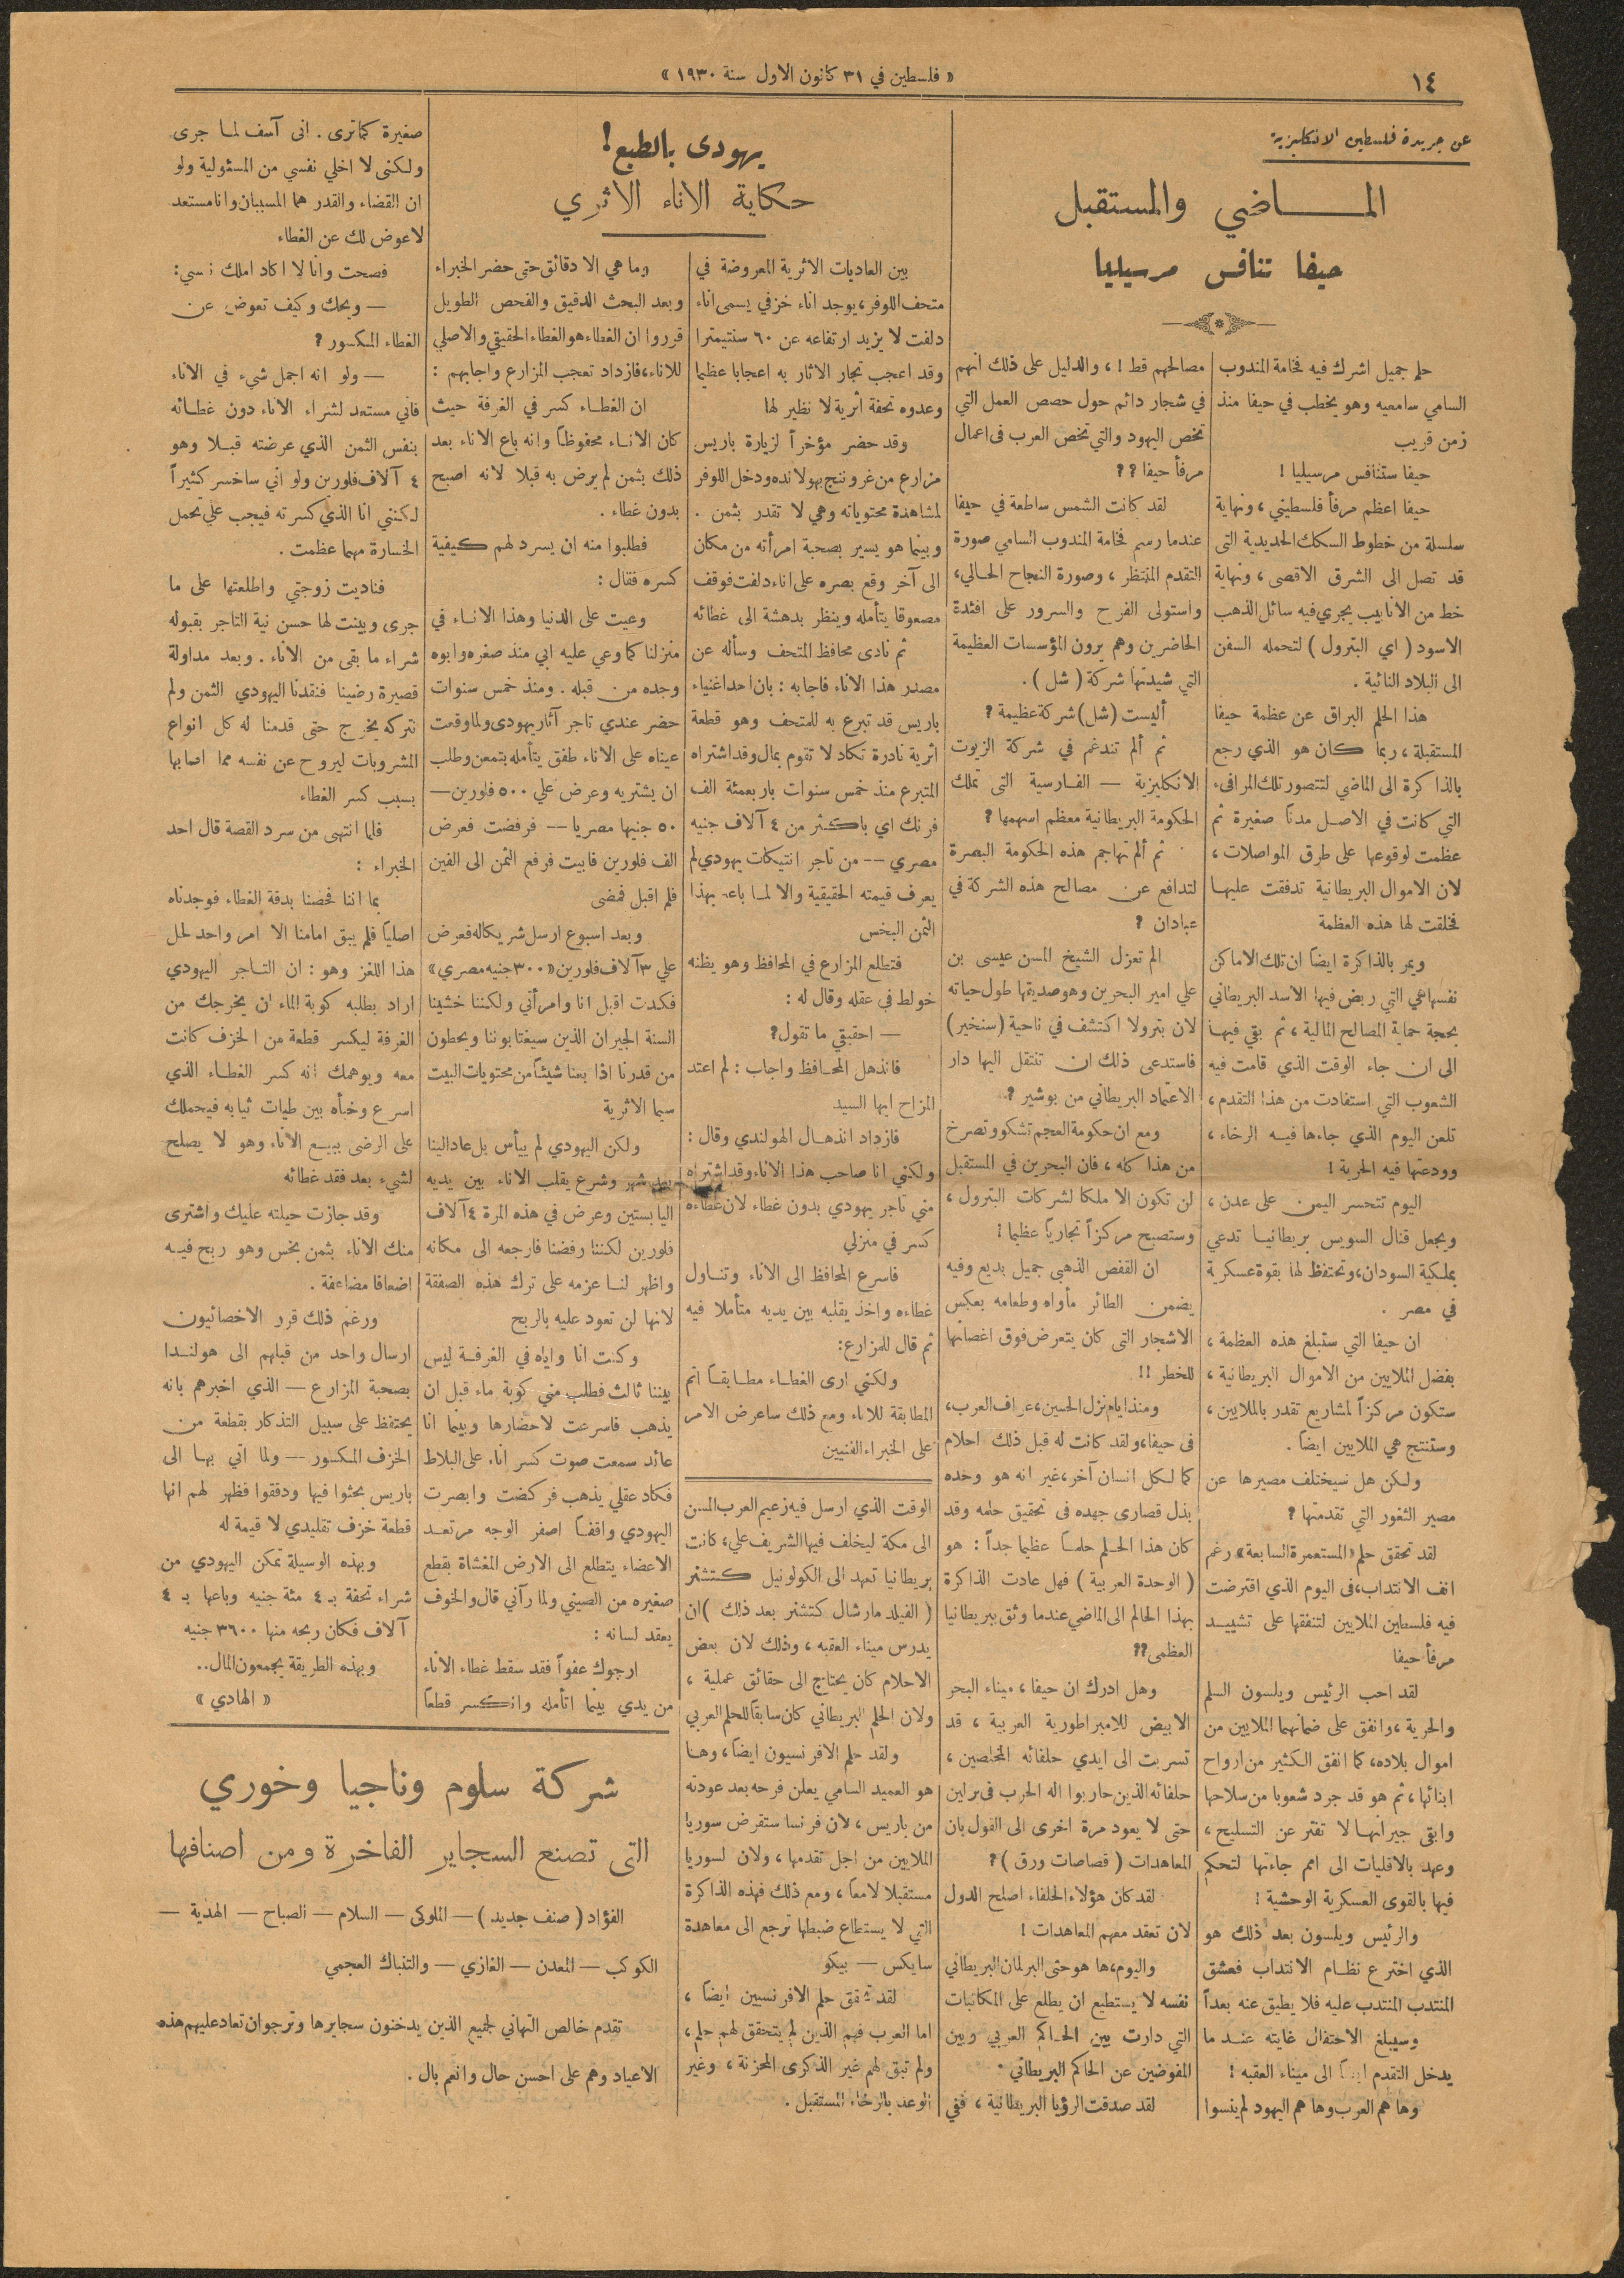 ١٤
« فلسطين في ٣١ كانون الاول سنة ١٩٣٠ »
عن جريدة فلسطين الانكليزية
المـــاضي والمستقبل
حيفا تنافس مرسيليا
حلم جميل اشرك فيه فخامة المندوب
السامي سامعيه وهو يخطب في حيفا منذ
زمن قريب
حيفا ستنافس مرسيليا !
حيفا اعظم مرفأ فلسطيني ، ونهاية
سلسلة من خطوط السكك الحديدية التى
قد تصل الى الشرق الاقصى ، ونهاية
خط من الانابيب يجري فيه سائل الذهب
الاسود ( اي البترول ) لتحمله السفن
الى البلاد النائية .
هذا الحلم البراق عن عظمة حيفا
المستقبلة ، ربما كان هو الذي رجع
بالذاكرة الى الماضي لتتصور تلك المرافىء
التي كانت في الاصل مدناً صغيرة ثم
عظمت لوقوعها على طرق المواصلات ،
لان الاموال البريطانية تدفقت عليها
فخلقت لها هذه العظمة
ويمر بالذاكرة ايضاً ان تلك الاماكن
نفسها هي التي ربض فيها الاسد البريطاني
بحجة حماية المصالح المالية ، ثم بقي فيها
الى ان جاء الوقت الذي قامت فيه
الشعوب التي استفادت من هذا التقدم ،
تلعن اليوم الذي جاءها فيه الرخاء ،
وودعتها فيه الحرية !
اليوم تتحسر اليمن على عدن ،
ويجعل قنال السويس بريطانيا تدعي
بملكية السودان، وتحتفظ لها بقوة عسكرية
في مصر .
ان حيفا التي ستبلغ هذه العظمة ،
بفضل الملايين من الاموال البريطانية ،
ستكون مركزاً لمشاريع تقدر بالملايين ،
وستنتج هي الملايين ايضاً .
ولكن هل سيختلف مصيرها عن
مصير الثغور التي تقدمتها ?
لقد تحقق حلم «المستعمرة السابعة» رغم
انف الانتداب، فى اليوم الذي اقترضت
فيه فلسطين الملايين لتنفقها على تشييد
مرفأ حيفا
لقد احب الرئيس ويلسون السلم
والحرية ، وانفق على ضمانهما الملايين من
اموال بلاده، كما انفق الكثير من ارواح
ابنائها ، ثم هو قد جرد شعوبا من سلاحها
وابقى جيرانها لا تفتر عن التسليح ،
وعهد بالاقليات الى امم جاءتها لتحكم
فيها بالقوى العسكرية الوحشية !
والرئيس ويلسون بعد ذلك هو
الذي اخترع نظام الانتداب فعشق
المنتدب المنتدب عليه فلا يطيق عنه بعداً
وسيبلغ الاحتفال غايته عند ما
يدخل التقدم ايضاً الى ميناء العقبه !
وها هم العرب وها هم اليهود لم ينسوا
مصالحهم قط ! ، والدليل على ذلك انهم
في شجار دائم حول حصص العمل التي
تخص اليهود والتي تخص العرب فى اعمال
مرفأ حيفا ? ?
لقد كانت الشمس ساطعة في حيفا
عندما رسم فخامة المندوب السامي صورة
التقدم المنتظر ، وصورة النجاح الحالي،
واستولى الفرح والسرور على افئدة
الحاضرين وهم يرون المؤسسات العظيمة
التي شيدتها شركة ( شل ) .
أليست ( شل ) شركة عظيمة ?
ثم ألم تندغم في شركة الزيوت
الانكليزية — الفارسية التى تملك
الحكومة البريطانية معظم اسهمها ?
ثم ألم تهاجم هذه الحكومة البصرة
لتدافع عن مصالح هذه الشركة في
عبادان ?
الم تعزل الشيخ المسن عيسى بن
علي امير البحرين وهو صديقها طول حياته
لان بترولا اكتشف في ناحية (سنخير)
فاستدعى ذلك ان تنتقل اليها دار
الاعتماد البريطاني من بوشير ?
ومع ان حكومة العجم تشكو وتصرخ
من هذا كله ، فان البحرين في المستقبل
لن تكون الا ملكا لشركات البترول ،
وستصبح مركزاً تجارياً عظيما !
ان القفص الذهبي جميل بديع وفيه
يضمن الطائر مأواه وطعامه بعكس
الاشجار التى كان يتعرض فوق اغصانها
للخطر !!
ومنذ ايام نزل الحسين، عراف العرب،
فى حيفا، ولقد كانت له قبل ذلك احلام
كما لكل انسان آخر، غير انه هو وحده
بذل قصارى جهده فى تحقيق حلمه وقد
كان هذا الحلم حلماً عظيما جداً : هو
( الوحدة العربية ) فهل عادت الذاكرة
بهذا الحالم الى الماضي عندما وثق ببريطانيا
العظمى ??
وهل ادرك ان حيفا ، ميناء البحر
الابيض للامبراطورية العربية ، قد
تسربت الى ايدي حلفائه المخلصين ،
حلفائه الذين حاربوا اله الحرب فى برلين
حتى لا يعود مرة اخرى الى القول بان
المعاهدات ( قصاصات ورق ) ?
لقد كان هؤلاء الحلفاء اصلح الدول
لان تعقد معهم المعاهدات !
واليوم، ها هو حتى البرلمان البريطاني
نفسه لا يستطيع ان يطلع على المكاتبات
التي دارت بين الحاكم العربي وبين
المفوضين عن الحاكم البريطاني .
لقد صدقت الرؤيا البريطانية ، ففي
الوقت الذي ارسل فيه زعيم العرب المسن
الى مكة ليخلف فيها الشريف علي، كانت
بريطانيا تعهد الى الكولونيل كتشنر
( الفيلد مارشال كتشنر بعد ذلك ) ان
يدرس ميناء العقبه ، وذلك لان بعض
الاحلام كان يحتاج الى حقائق عملية ،
ولان الحلم البريطاني كان سابقاً للحلم العربي
ولقد حلم الافرنسيون ايضاً ، وها
هو العميد السامي يعلن فرحه بعد عودته
من باريس ، لان فرنسا ستقرض سوريا
الملايين من اجل تقدمها ، ولان لسوريا
مستقبلا لامعاً ، ومع ذلك فهذه الذاكرة
التي لا يستطاع ضبطها ترجع الى معاهدة
سايكس — بيكو
لقد تحقق حلم الافرنسيين ايضاً ،
اما العرب فهم الذين لم يتحقق لهم حلم ،
ولم تبق لهم غير الذكرى المحزنة ، وغير
الوعد بالرخاء المستقبل .
يهودى بالطبع !
حكاية الاناء الاثري
بين العاديات الاثرية المعروضة في
متحف اللوفر، يوجد اناء خزفي يسمى اناء
دلفت لا يزيد ارتفاعه عن ٦٠ سنتيمترا
وقد اعجب تجار الاثار به اعجابا عظيما
وعدوه تحفة اثرية لا نظير لها
وقد حضر مؤخراً لزيارة باريس
مزارع من غروننج بهولانده ودخل اللوفر
لمشاهدة محتوياته وهي لا تقدر بثمن .
وبينما هو يسير بصحبة امرأته من مكان
الى آخر وقع بصره على اناء دلفت فوقف
مصعوقا يتأمله وينظر بدهشة الى غطائه
ثم نادى محافظ المتحف وسأله عن
مصدر هذا الاناء فاجابه : بان احد اغنياء
باريس قد تبرع به للمتحف وهو قطعة
اثرية نادرة تكاد لا تقوم بمال وقد اشتراه
المتبرع منذ خمس سنوات باربعمئة الف
فرنك اي باكثر من ٤ آلاف جنيه
مصري -- من تاجر انتيكات يهودي لم
يعرف قيمته الحقيقية والا لما باعه بهذا
الثمن البخس
فتطلع المزارع في المحافظ وهو يظنه
خولط فى عقله وقال له :
— احقيقي ما تقول ?
فانذهل المحافظ واجاب : لم اعتد
المزاح ايها السيد
فازداد انذهال الهولندي وقال :
ولكني انا صاحب هذا الاناء وقد اشتراه
مني تاجر يهودي بدون غطاء لان غطاءه
كسر في منزلي
فاسرع المحافظ الى الاناء وتناول
غطاءه واخذ يقلبه بين يديه متأملا فيه
ثم قال للمزارع :
ولكني ارى الغطاء مطابقاً اتم
المطابقة للاناء ومع ذلك ساعرض الامر
على الخبراء الفنيين
وما هي الا دقائق حتى حضر الخبراء
وبعد البحث الدقيق والفحص الطويل
قرروا ان الغطاء هو الغطاء الحقيقي والاصلي
للاناء، فازداد تعجب المزارع واجابهم :
ان الغطاء كسر في الغرفة حيث
كان الاناء محفوظاً وانه باع الاناء بعد
ذلك بثمن لم يرض به قبلا لانه اصبح
بدون غطاء .
فطلبوا منه ان يسرد لهم كيفية
كسره فقال :
وعيت على الدنيا وهذا الاناء في
منزلنا كما وعي عليه ابي منذ صغره وابوه
وجده من قبله . ومنذ خمس سنوات
حضر عندي تاجر آثار يهودى ولما وقعت
عيناه على الاناء طفق يتأمله بتمعن وطلب
ان يشتريه وعرض علي ٥٠٠ فلورين —
٥٠ جنيها مصريا -- فرفضت فعرض
الف فلورين فابيت فرفع الثمن الى الفين
فلم اقبل فمضى
وبعد اسبوع ارسل شريكاله فعرض
علي ٣ آلاف فلورين «٣٠٠ جنيه مصري»
فكدت اقبل انا وامرأتي ولكننا خشينا
السنة الجيران الذين سيغتابوننا ويحطون
من قدرنا اذا بعنا شيئاً من محتويات البيت
سيما الاثرية
ولكن اليهودي لم ييأس بل عاد الينا
بعد شهر وشرع يقلب الاناء بين يديه
اليابستين وعرض في هذه المرة ٤ آلاف
فلورين لكننا رفضنا فارجعه الى مكانه
واظهر لنا عزمه على ترك هذه الصفقة
لانها لن تعود عليه بالربح
وكنت انا واياه في الغرفة ليس
بيننا ثالث فطلب مني كوبة ماء قبل ان
يذهب فاسرعت لاحضارها وبينما انا
عائد سمعت صوت كسر اناء على البلاط
فكاد عقلي يذهب فركضت وابصرت
اليهودي واقفاً اصفر الوجه مرتعد
الاعضاء يتطلع الى الارض المغشاة بقطع
صغيره من الصيني ولما رآني قال والخوف
يعقد لسانه :
ارجوك عفواً فقد سقط غطاء الاناء
من يدي بينما اتأمله وانكسر قطعاً
صغيرة كما ترى . انى آسف لما جرى
ولكنى لا اخلي نفسي من المسؤولية ولو
ان القضاء والقدر هما المسببان وانا مستعد
لاعوض لك عن الغطاء
فصحت وانا لا اكاد املك نفسي :
— ويحك وكيف تعوض عن
الغطاء المكسور ?
— ولو انه اجمل شيء في الاناء
فاني مستعد لشراء الاناء دون غطائه
بنفس الثمن الذي عرضته قبلا وهو
٤ آلاف فلورين ولو اني ساخسر كثيراً
لكنني انا الذي كسرته فيجب علي تحمل
الخسارة مهما عظمت .
فناديت زوجتي واطلعتها على ما
جرى وبينت لها حسن نية التاجر بقبوله
شراء ما بقى من الاناء . وبعد مداولة
قصيرة رضينا فنقدنا اليهودي الثمن ولم
نتركه يخرج حتى قدمنا له كل انواع
المشروبات ليروح عن نفسه مما اصابها
بسبب كسر الغطاء
فلما انتهى من سرد القصة قال احد
الخبراء :
بما اننا فحصنا بدقة الغطاء فوجدناه
اصلياً فلم يبق امامنا الا امر واحد لحل
هذا اللغز وهو : ان التاجر اليهودي
اراد بطلبه كوبة الماء ان يخرجك من
الغرفة ليكسر قطعة من الخزف كانت
معه ويوهمك انه كسر الغطاء الذي
اسرع وخبأه بين طيات ثيابه فيحملك
على الرضى ببيع الاناء وهو لا يصلح
لشيء بعد فقد غطائه
وقد جازت حيلته عليك واشترى
منك الاناء بثمن بخس وهو ربح فيه
اضعافا مضاعفة .
ورغم ذلك قرر الاخصائيون
ارسال واحد من قبلهم الى هولندا
بصحبة المزارع — الذي اخبرهم بانه
يحتفظ على سبيل التذكار بقطعة من
الخزف المكسور -- ولما اتي بها الى
باريس بحثوا فيها ودققوا فظهر لهم انها
قطعة خزف تقليدي لا قيمة له
وبهذه الوسيلة تمكن اليهودي من
شراء تحفة بـ ٤ مئة جنيه وباعها بـ ٤
آلاف فكان ربحه منها ٣٦٠٠ جنيه
وبهذه الطريقة يجمعون المال ..
« الهادي »
شركة سلوم وناجيا وخوري
التى تصنع السجاير الفاخرة ومن اصنافها
الفؤاد ( صنف جديد ) — الملوكى — السلام — الصباح — الهدية —
الكوكب — المعدن — الغازي — والتنباك العجمي
تقدم خالص التهاني لجميع الذين يدخنون سجايرها وترجوان تعاد عليهم هذه
الاعياد وهم على احسن حال وانعم بال .